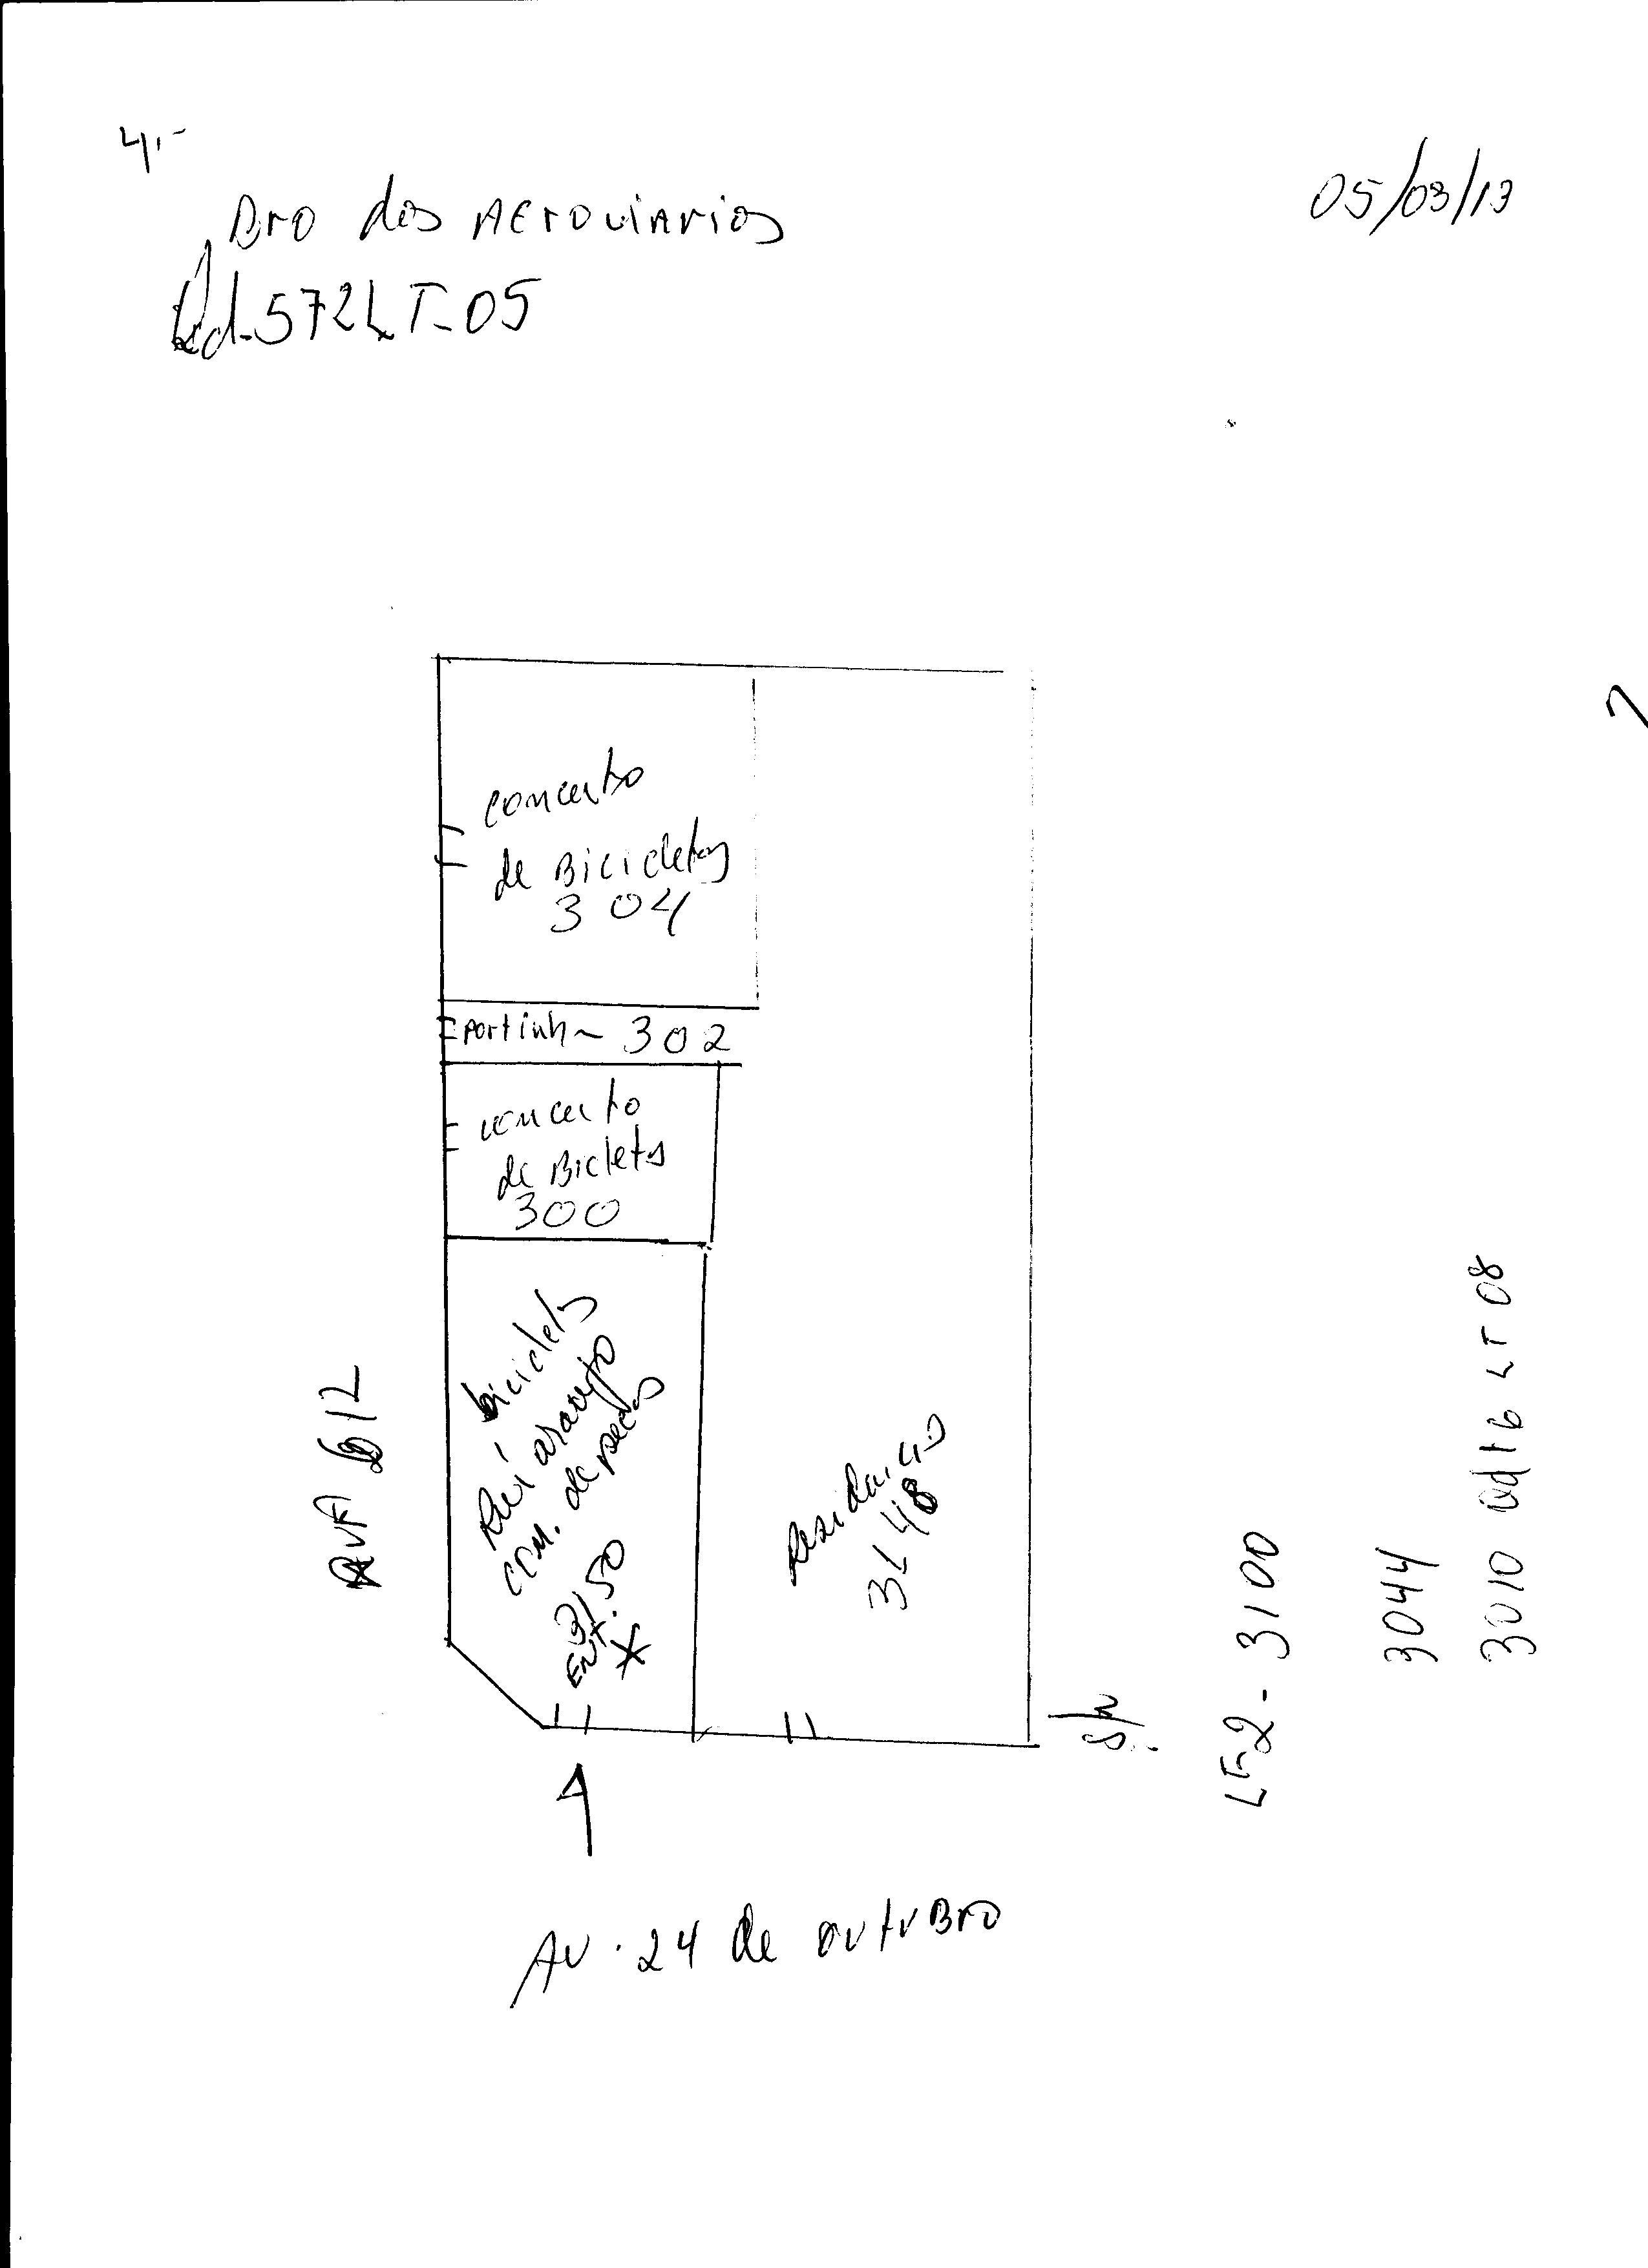 4.-
05/03/13
Bro dos AEroviArios
Qd-57 2 LT-05
concerto
de Bicicletas
304
Portinh~ 302
concerto
de Bicletas
300
bicicletas
Rui araujo
com. de peças
3150
Ent.
Residencio
3148
RUA 612
S/N
LT-2 - 3100
3044
3010 Qd 16 LT 08
AV. 24 de outuBro